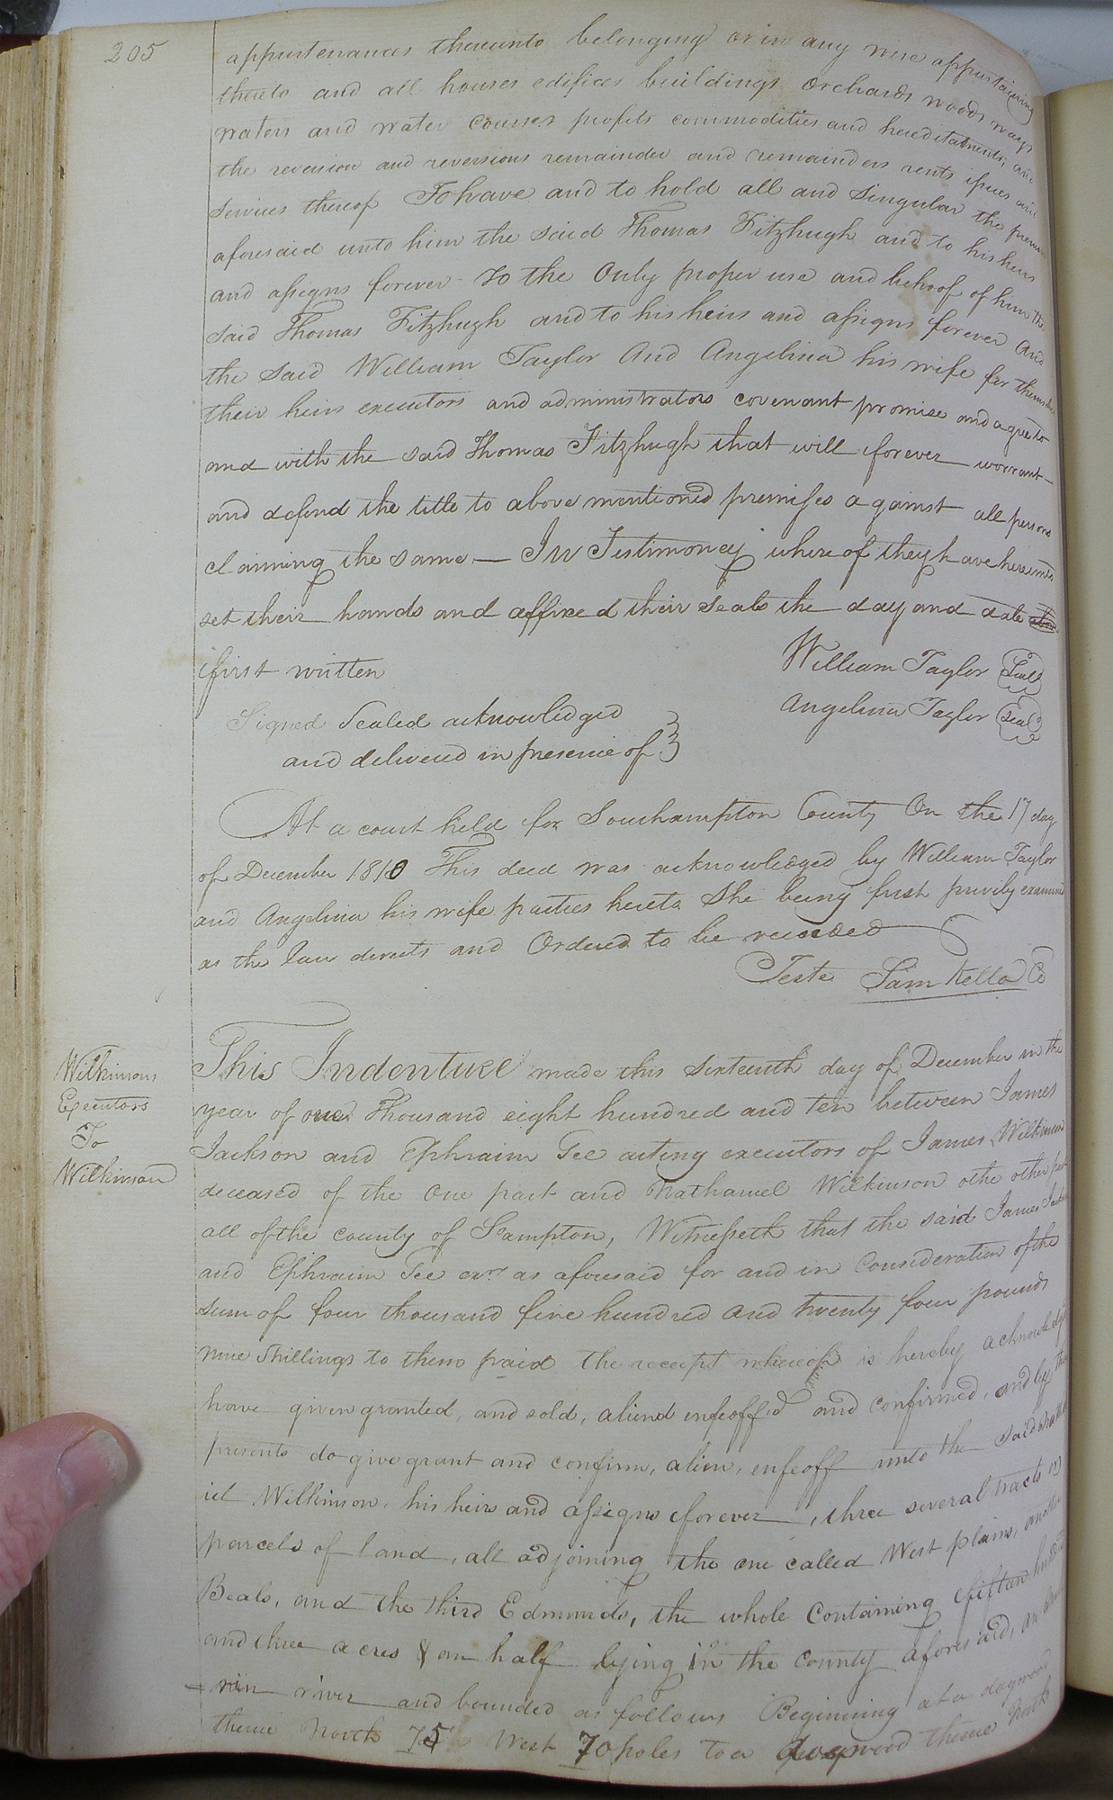 205
appurtenances thereunto belonging or in any wise appertaining
thereto and all houses edifices buildings orchards woods ways
waters and water courses profits commodities and hereditaments, and
the reversion and reversions remainder and remainders rents issues and
services thereof To have and to hold all and Singular the
aforesaid unto him the said Thomas Fitzhugh and to his heirs
and assigns forever To the Only proper use and behoof of him the
said Thomas Fitzhugh and to his heirs and assigns forever And
the said William Taylor And Angelina his wife for themselves
their heirs executors and administrators covenant promise and agree to
and with the said Thomas Fitzhugh that will forever warrant
and defend the title to above mentioned premises against all persons
claiming the same — In Testimoney where of they have hereunto
set their hands and affixed their seals the day and date
first written
William Taylor (Seal)
Angelina Taylor (Seal)
Signed Sealed acknowledged
and delivered in presence of
At a court held for Southampton County On the 17 day
of December 1810 This deed was acknowledged by William Taylor
and Angelina his wife parties hereto She being first privily examined
as the law directs and Ordered to be recorded
Teste Sam Kello C
Wilkinsons
Executors
To
Wilkinson
This Indenture made this Sixteenth day of December in the
year of one Thousand eight hundred and ten between James
Jackson and Ephraim Tee acting executors of James Wilkinson
deceased of the One part and Nathaniel Wilkinson othe other part
all of the county of S.ampton, Witnesseth that the said James Jackson
and Ephraim Tee exrs as aforesaid for and in Consideration of the
sum of four thousand five hundred and twenty four pounds
nine Shillings to them paid the receipt whereof is hereby acknowledged
have given granted, and sold, aliend enfeoffed and confirmed, and by these
presents do give grant and confirm, alien, enfeoff unto the said Nathan
iel Wilkinson, his heirs and assigns forever, three several tracts or
parcels of land, all adjoining the one called West plains, another
Beals, and the third Edmunds, the whole Containing fifteen hundred
and three acres & on half lying in the county aforesaid, on
rin river and bounded as follows Beginning at a dogwood
thence North 75 West 70 poles to a dogwood thence North